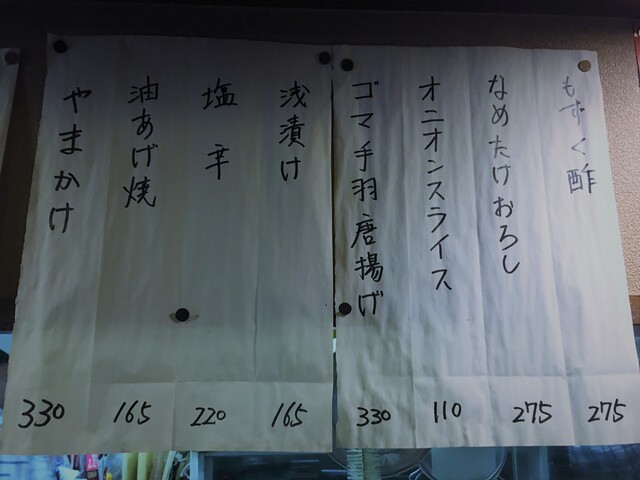 もずく酢
275
なめたけおろし
275
オニオンスライス
110
ゴマ手羽唐揚げ
330
浅漬け
165
塩辛
220
油あげ焼
165
やまかけ
330